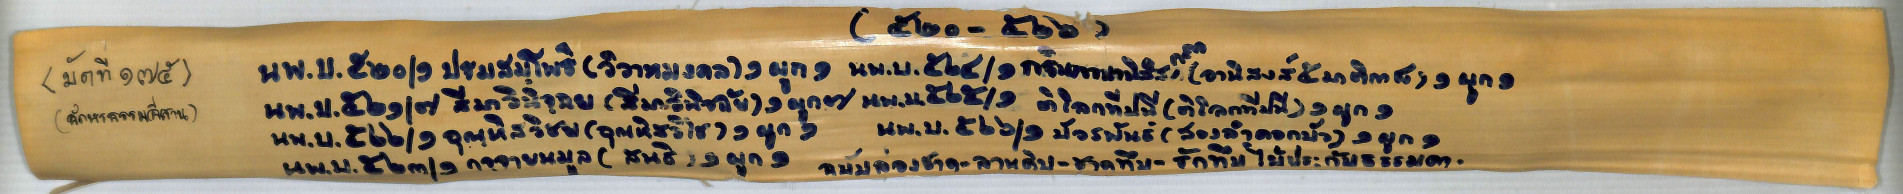 (๕๒๐ - ๕๒๖)
(มัดที่ ๑๗๕)
(อักษรธรรมอีสาน)
นพ.บ. ๕๒๐/๑ ปฐมสมโพธิ (วิวาหมงคล) ๑ ผูก ๑ นพ.บ. ๕๒๔/๑ (อานิสงส์ ๑ ผูก ๑
นพ.บ. ๕๒๑/๗ สีมาวินิจฺฉย (สีมาวินิจฉัย) ๑ ผูก ๗ นพ.บ. ๕๒๕/๑ ติโลกทีปนี (ติโลกทีปนี) ๑ ผูก ๑
นพ.บ. ๕๒๒/๑ อุณฺหิสวิชย (อุณหิสวิไช) ๑ ผูก ๑ นพ.บ. ๕๒๖/๑ บัวรพันธ์ (สองลำดอกบัว) ๑ ผูก ๑
นพ.บ. ๕๒๓/๑ กจฺจายนมูล (สนธิ) ๑ ผูก ๑ ฉบับล่องชาด - ลานดิบ - ชาดทึบ - รักทึบ ไม้ประกับธรรมดา.